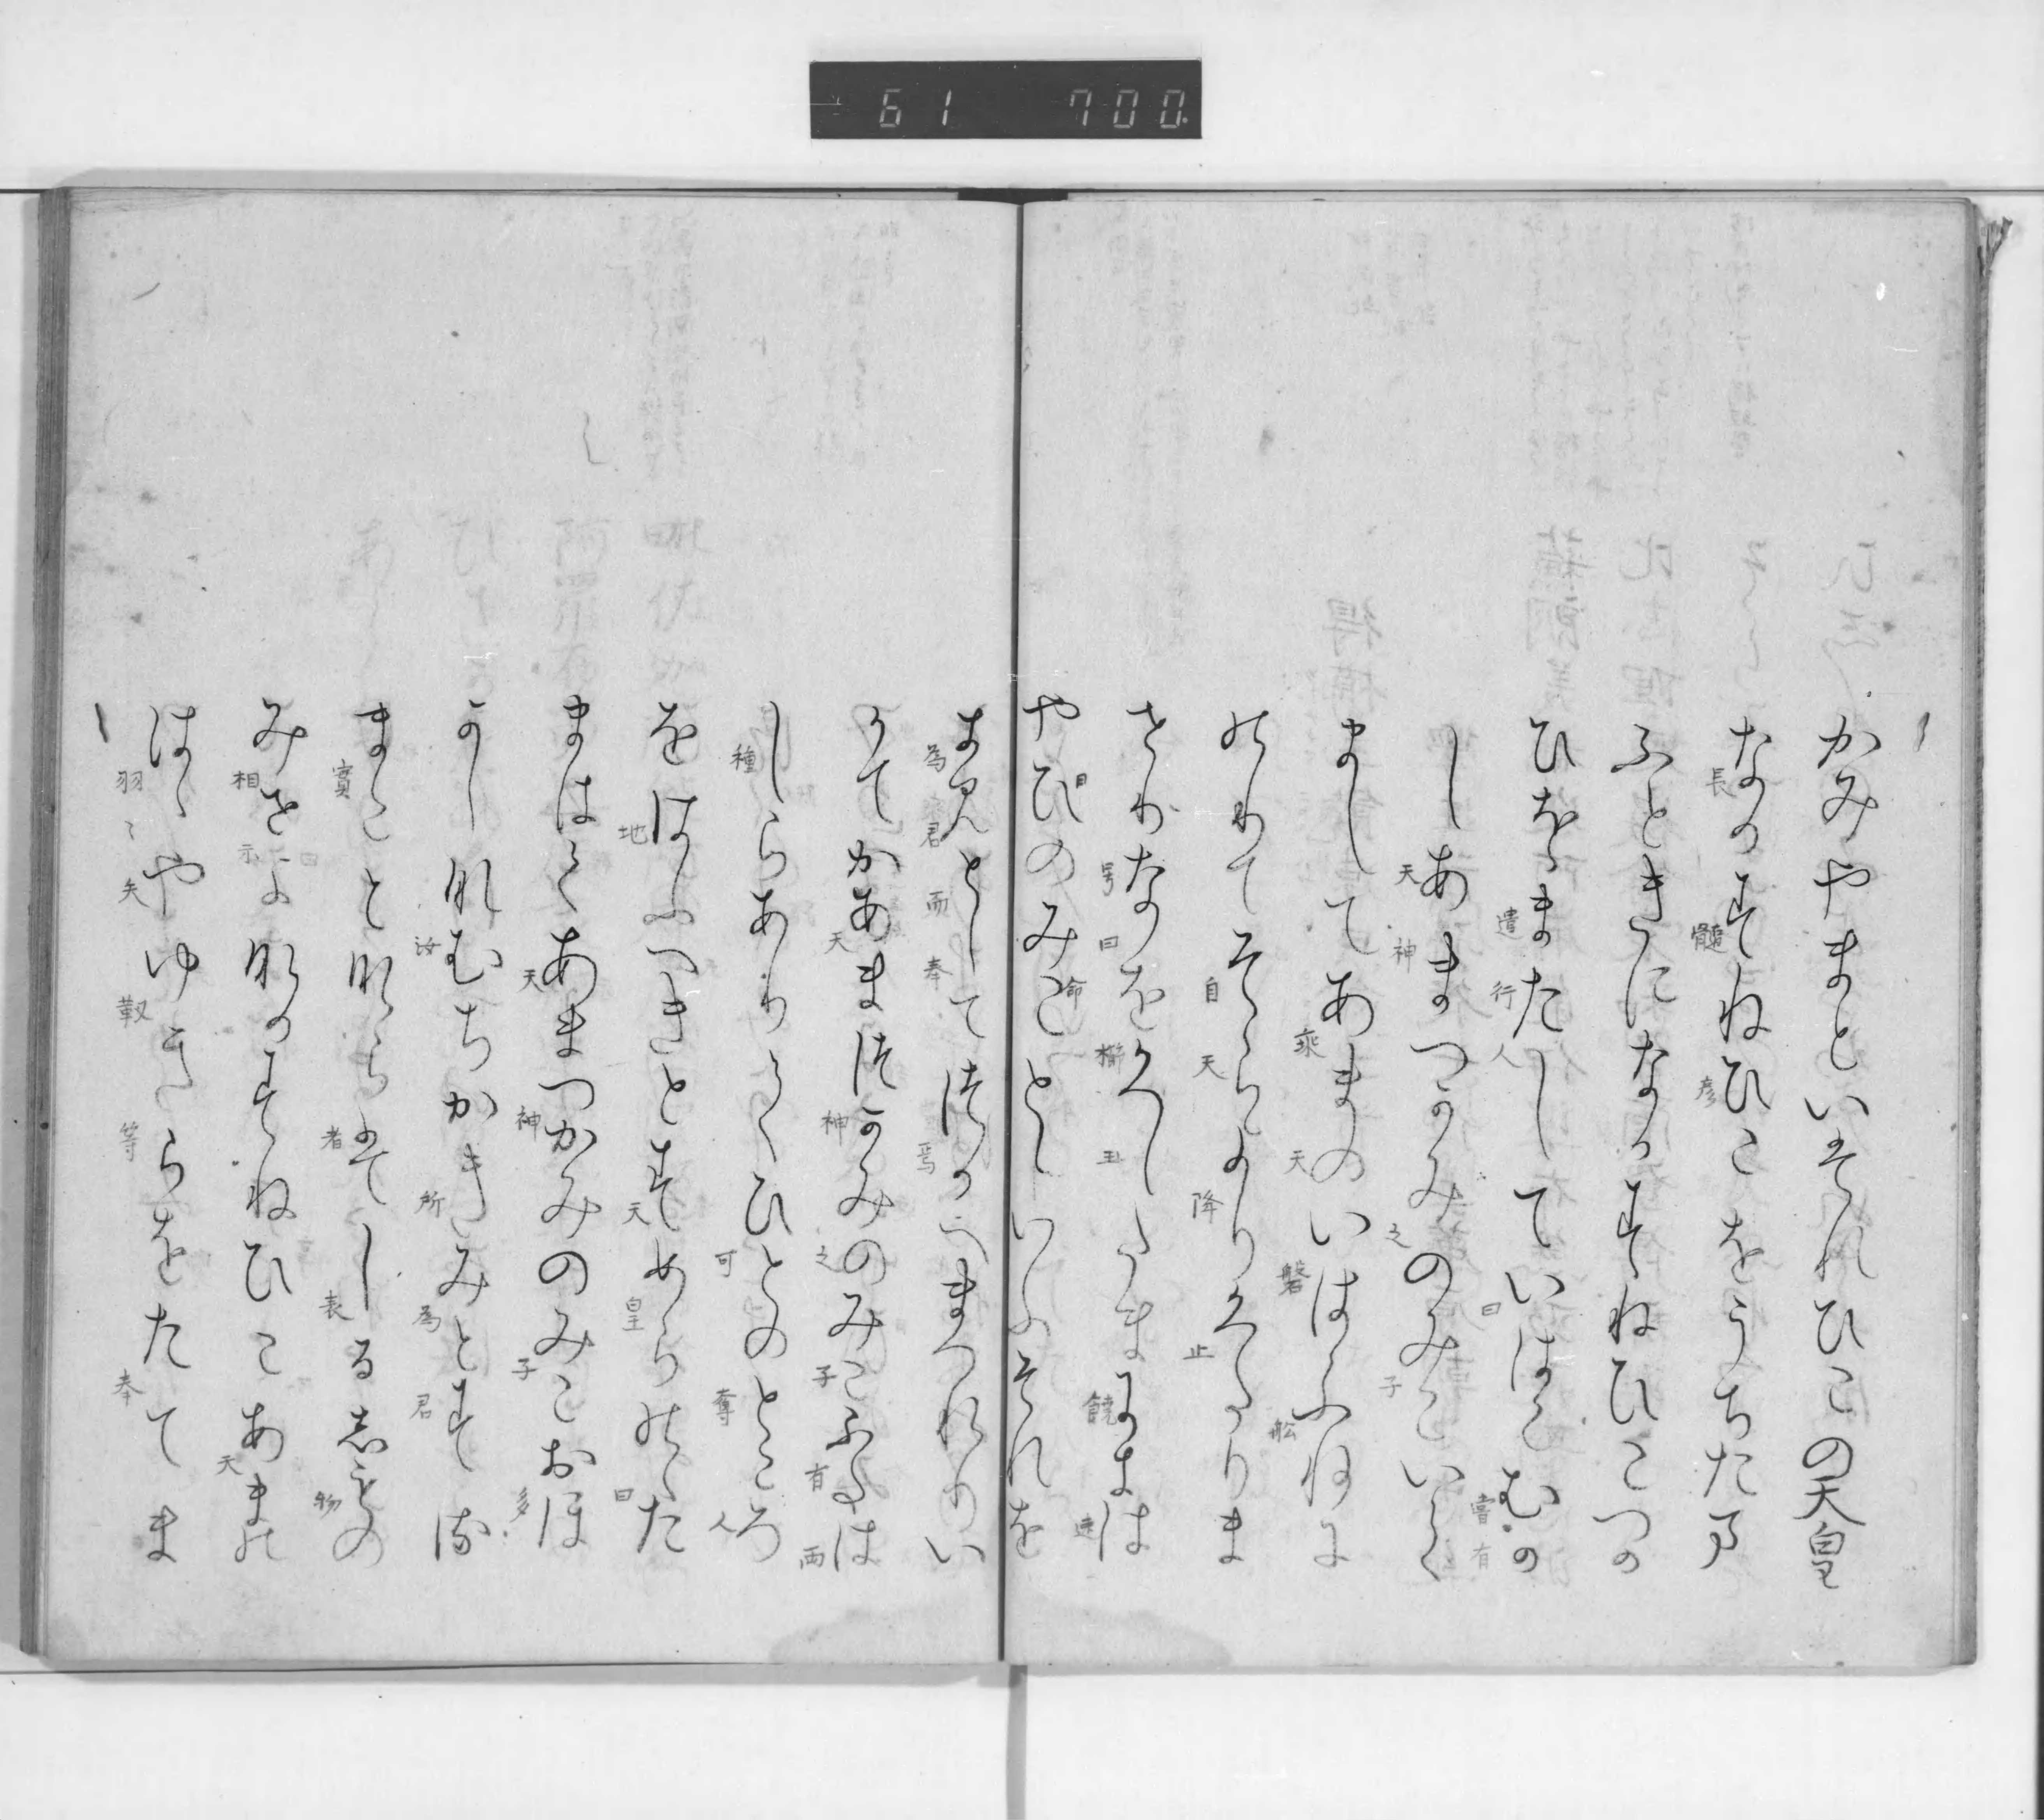 61 700
かみやまといはれひこの天皇
なかすねひこをうちたま
ふときになかすねひこつか
ひをまたしていはくむか
しあまつかみのみこいく
ましてあまのいはふねに
のりてそらよりくたりま
せりなをくしたまにきはは
やひのみことゝいふそれを
きみとしてつかへまつれりい
かてかあまつかみのみこふたは
しらありてひとのところ
をはふへきとすめらのた
まはくあまつかみのみこおほ
かしなむちかきみとする
まことならはてしるしもの
みせよなかすねひこあまの
はゝやゆきらをたてま
長 髄 彦
遣 行人 曰 嘗有
天 神 之 子
乗 天 磐 舩
自 天 降 止
号 曰 櫛 玉 饒 速
日 命
為 君 而 奉 焉
天 神 之 子 有 両
種 可 奪 人
地 天 皇 曰
天 神 子 多
汝 所 為 君
實 者 表 物
相 示 天
羽〻矢 靫 等 奉